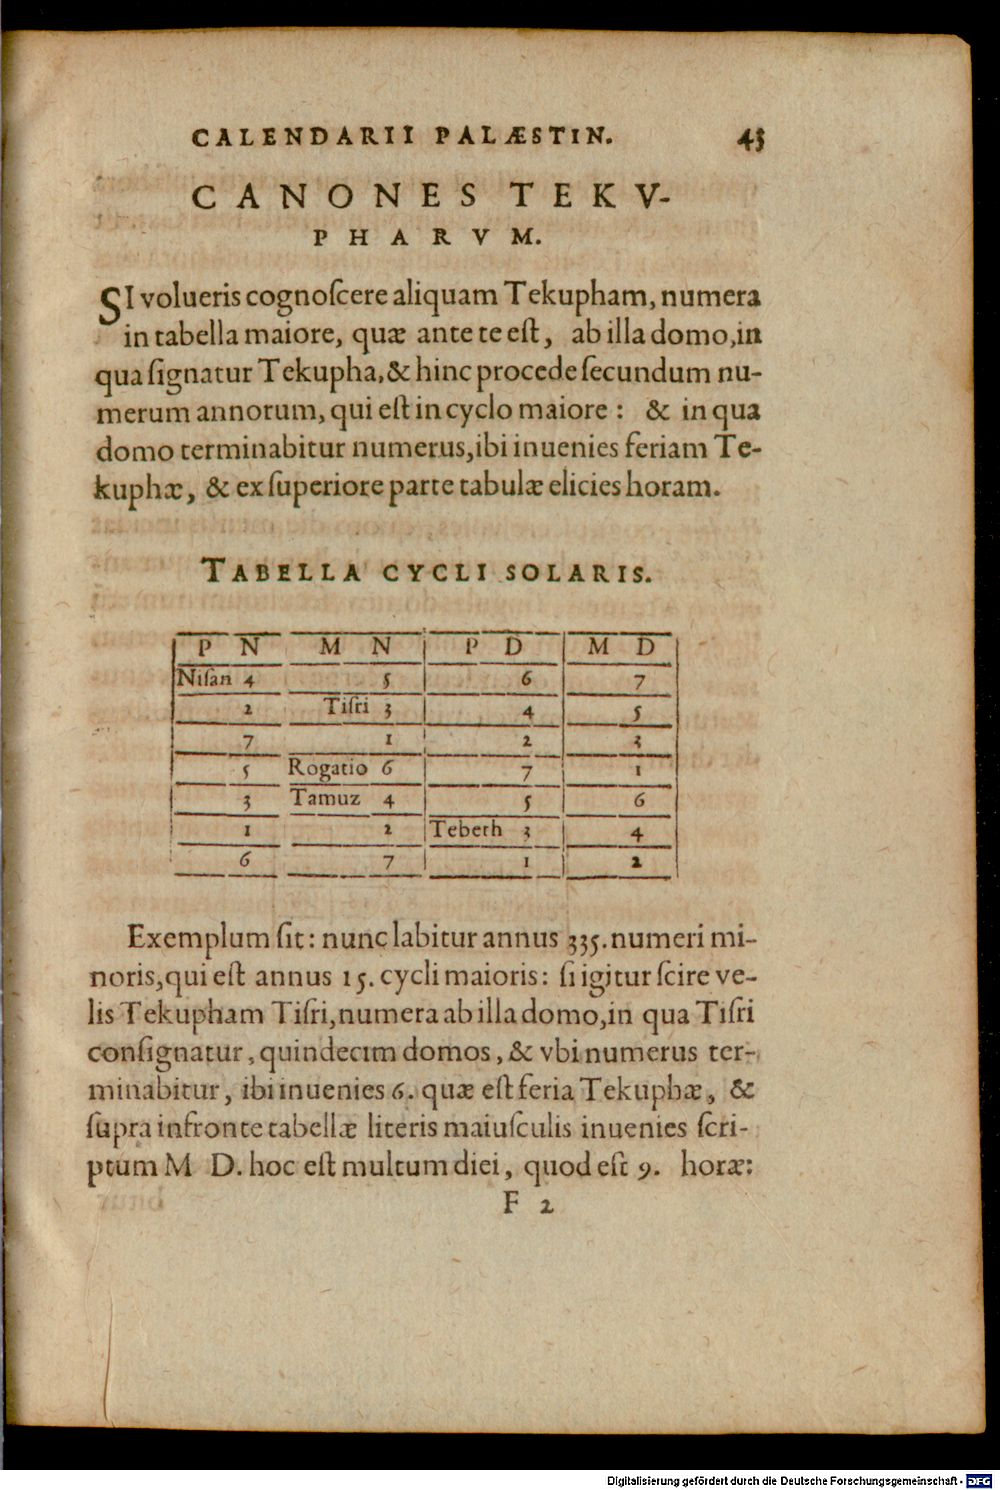 CALENDARII PALÆSTIN. 43
CANONES TEKV-
PHARVM.
SI volueris cognoſcere aliquam Tekupham, numera
in tabella maiore, quæ ante te eſt, ab illa domo, in
qua ſignatur Tekupha, & hinc procede ſecundum nu-
merum annorum, qui eſt in cyclo maiore: & in qua
domo terminabitur numerus, ibi inuenies feriam Te-
kuphæ, & ex ſuperiore parte tabulæ elicies horam.
TABELLA CYCLI SOLARIS.
P N M N P D M D
Niſan 4 5 6 7
2 Tiſri 3 4 5
7 1 2 3
5 Rogatio 6 7 1
3 Tamuz 4 5 6
1 2 Tebeth 3 4
6 7 1 2
Exemplum ſit: nunc labitur annus 335. numeri mi-
noris, qui eſt annus 15. cycli maioris: ſi igitur ſcire ve-
lis Tekupham Tiſri, numera ab illa domo, in qua Tiſri
conſignatur, quindecim domos, & vbi numerus ter-
minabitur, ibi inuenies 6. quæ eſt feria Tekuphæ, &
ſupra in fronte tabellæ literis maiuſculis inuenies ſcri-
ptum M D. hoc eſt multum diei, quod eſt 9. horæ:
F 2
Digitalisierung gefördert durch die Deutsche Forschungsgemeinschaft - DFG